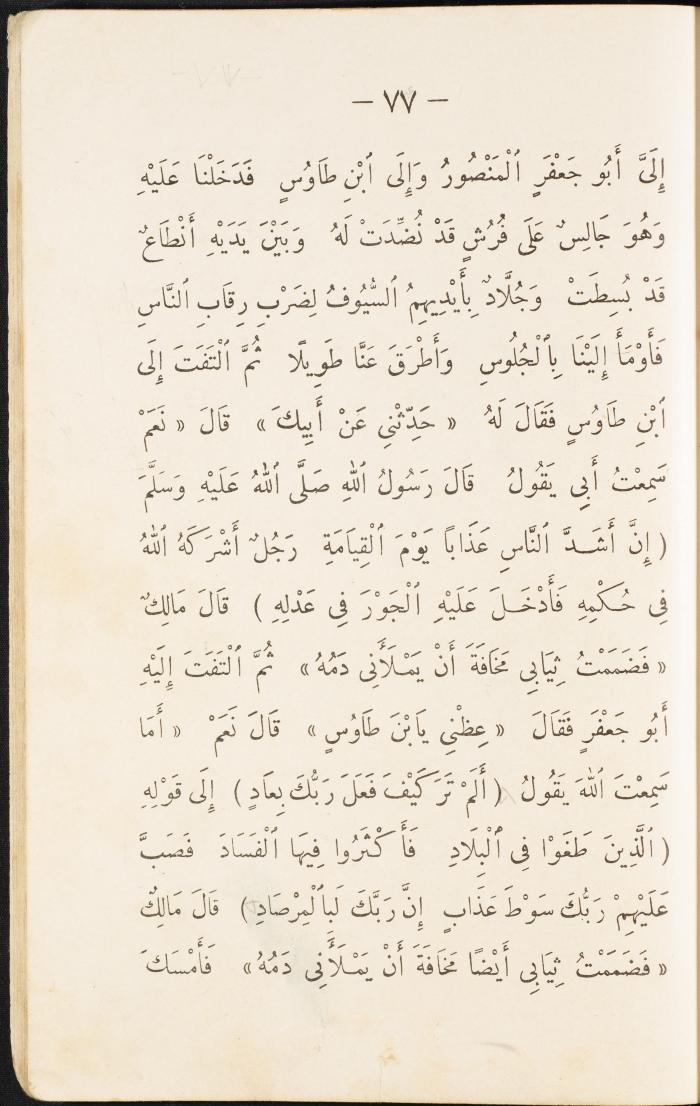 — ٧٧ —
إِلَىَّ أَبُو جَعْفَرٍ ٱلْمَنْصُورُ وَإِلَى ٱبْنِ طَاوُسٍ فَدَخَلْنَا عَلَيْهِ
وَهُوَ جَالِسٌ عَلَى فُرُشٍ قَدْ نُضِّدَتْ لَهُ وَبَيْنَ يَدَيْهِ أَنْطَاعٌ
قَدْ بُسِطَتْ وَجُلَّادٌ بِأَيْدِيهِمُ ٱلسُّيُوفُ لِضَرْبِ رِقَابِ ٱلنَّاسِ
فَأَوْمَأَ إِلَيْنَا بِٱلْجُلُوسِ وَأَطْرَقَ عَنَّا طَوِيلًا ثُمَّ ٱلْتَفَتَ إِلَى
ٱبْنِ طَاوُسٍ فَقَالَ لَهُ « حَدِّثْنِي عَنْ أَبِيكَ » قَالَ « نَعَمْ
سَمِعْتُ أَبِي يَقُولُ قَالَ رَسُولُ ٱللهِ صَلَّى ٱللهُ عَلَيْهِ وَسَلَّمَ
( إِنَّ أَشَدَّ ٱلنَّاسِ عَذَابًا يَوْمَ ٱلْقِيَامَةِ رَجُلٌ أَشْرَكَهُ ٱللهُ
فِى حُكْمِهِ فَأَدْخَلَ عَلَيْهِ ٱلْجَوْرَ فِى عَدْلِهِ ) قَالَ مَالِكٌ
« فَضَمَمْتُ ثِيَابِى مَخَافَةَ أَنْ يَمْلَأَنِى دَمُهُ » ثُمَّ ٱلْتَفَتَ إِلَيْهِ
أَبُو جَعْفَرٍ فَقَالَ « عِظْنِي يَابْنَ طَاوُسٍ » قَالَ نَعَمْ « أَمَا
سَمِعْتَ ٱللهَ يَقُولُ ( أَلَمْ تَرَ كَيْفَ فَعَلَ رَبُّكَ بِعَادٍ ) إِلَى قَوْلِهِ
( ٱلَّذِينَ طَغَوْا فِى ٱلْبِلَادِ فَأَكْثَرُوا فِيهَا ٱلْفَسَادَ فَصَبَّ
عَلَيْهِمْ رَبُّكَ سَوْطَ عَذَابٍ إِنَّ رَبَّكَ لَبِٱلْمِرْصَادِ ) قَالَ مَالِكٌ
« فَضَمَمْتُ ثِيَابِى أَيْضًا مَخَافَةَ أَنْ يَمْلَأَنِى دَمُهُ » فَأَمْسَكَ